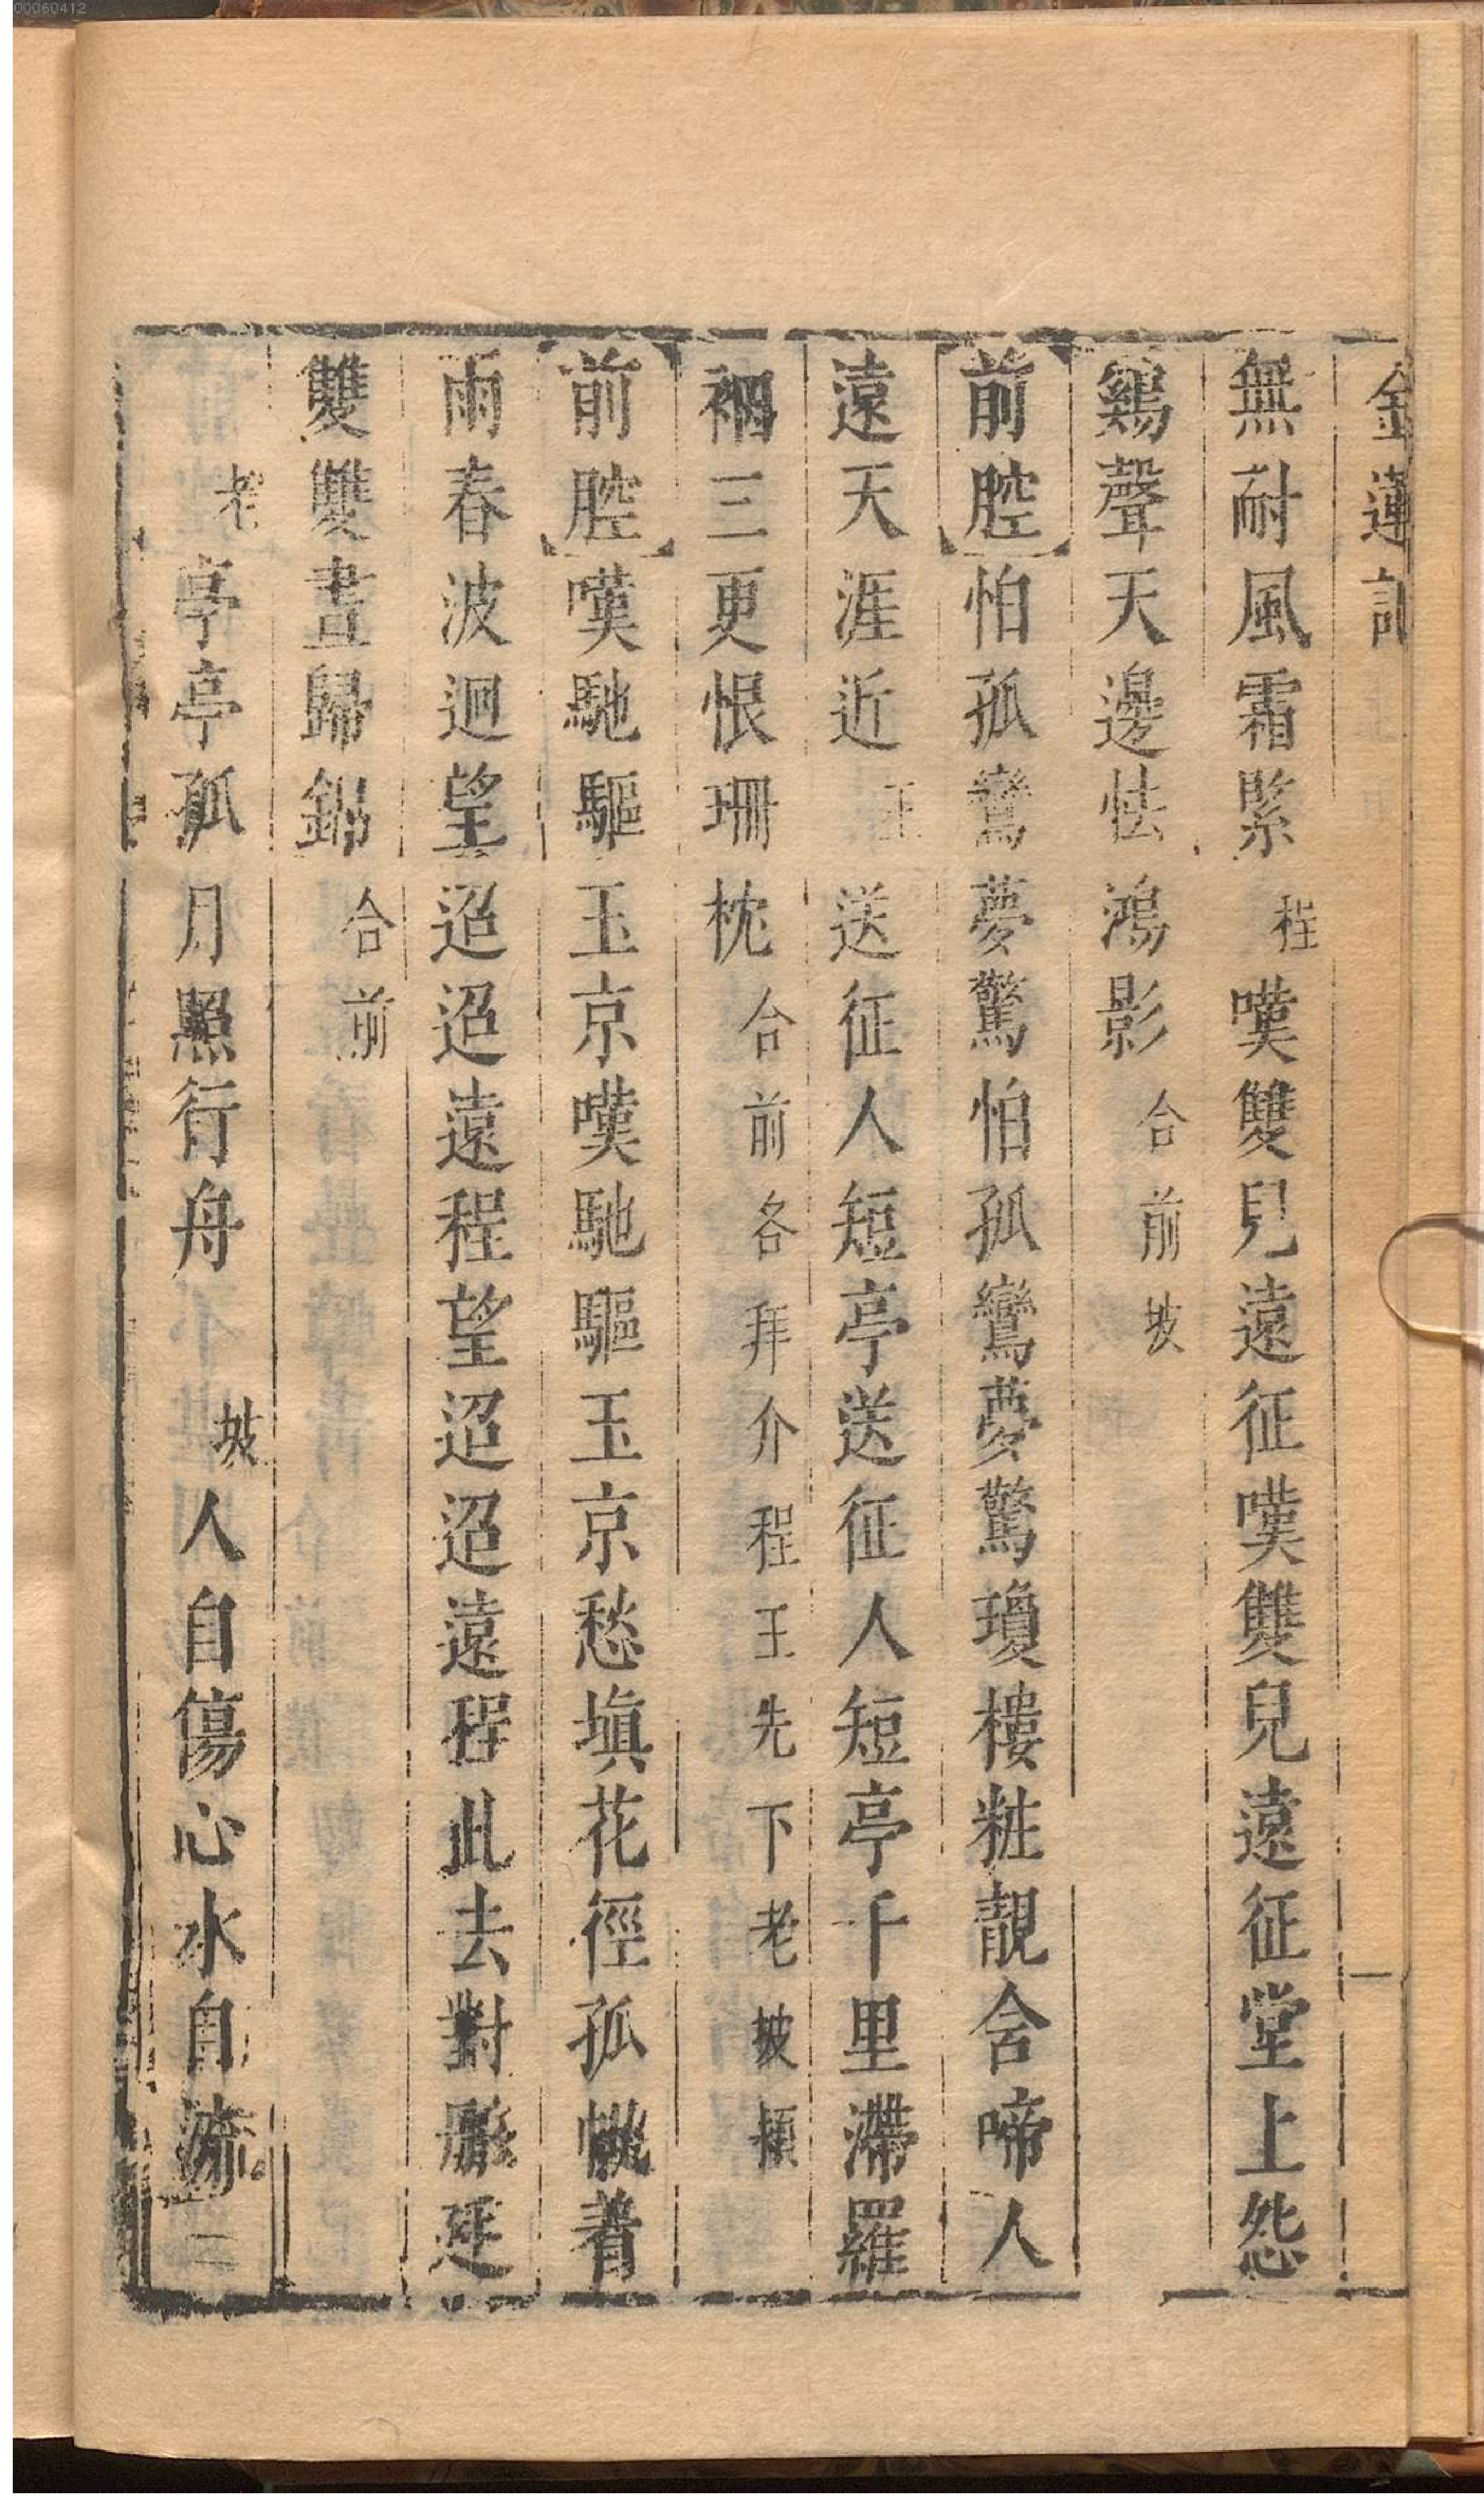 00060412
金蓮記
無耐風霜緊程嘆雙兒遠征嘆雙兒遠征堂上怨
鷄聲天邊怯鴻影合前坡
前腔怕孤鸞夢驚怕孤鸞夢驚瓊樓粧靚舍啼人
遠天涯近王送征人短亭送征人短亭千里滯羅
裀三更恨珊枕合前各拜介程王先下老坡潁
前腔嘆馳驅玉京嘆馳驅玉京愁塡花徑孤帆着
雨春波迥望迢迢遠程望迢迢遠程此去對彤廷
雙雙晝歸錦合前
老亭亭孤月照行舟坡人自傷心水自流
二